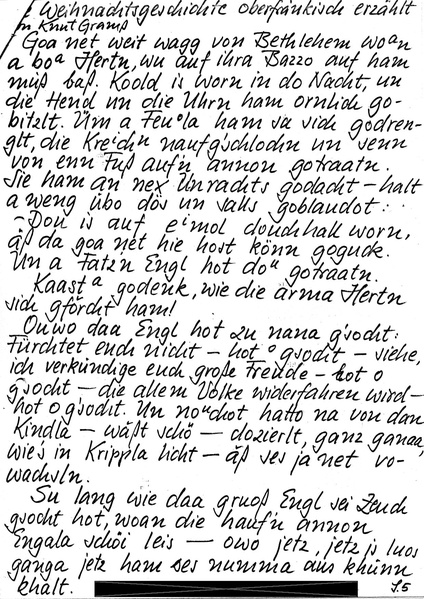 Weihnachtsgeschichte oberfränkisch erzählt
Goa net weit wagg von Bethlehem woan
a boa Hertn, wu auf ihra Bazzo auf ham
müß baß. Koold is worn in do Nacht, un
die Hend un die Uhrn ham ornlich go-
bitzlt. Um a Feuola ham sa sich godren-
glt, die naufgschlochn un senn
von enn Fuß auf'n annon gotraatn.
Sie ham an nex Unrachts godacht – halt
a weng übo dös un salls goblaudot:
Dou is auf eimol douchhall worn,
äß da goa net hie host könn goguck.
Un a Fatz'n Engl hot dou gotraatn.
Kaasta godenk, wie die arma Hertn
sich gförcht ham!
Ouwo daa Engl hot zu nana g'socht:
Fürchtet euch nicht – hot o gsocht – siehe,
ich verkündige euch große Freude – hot o
gsocht – die allem Volke widerfahren wird –
hot o gsocht. Un nouchot hatto na von dan
Kindla – wäßt schö – dozierlt, ganz ganaa,
wie's in Krippla licht – äß ses ja net vo-
wachsln.
Su lang wie daa gruoß Engl sei Zeuch
gsocht hot, woan die hauf'n annon
Engala schöi leis – owo jetz, jetz is luos
ganga jetz ham ses numma aus khünn
khalt.
S.5